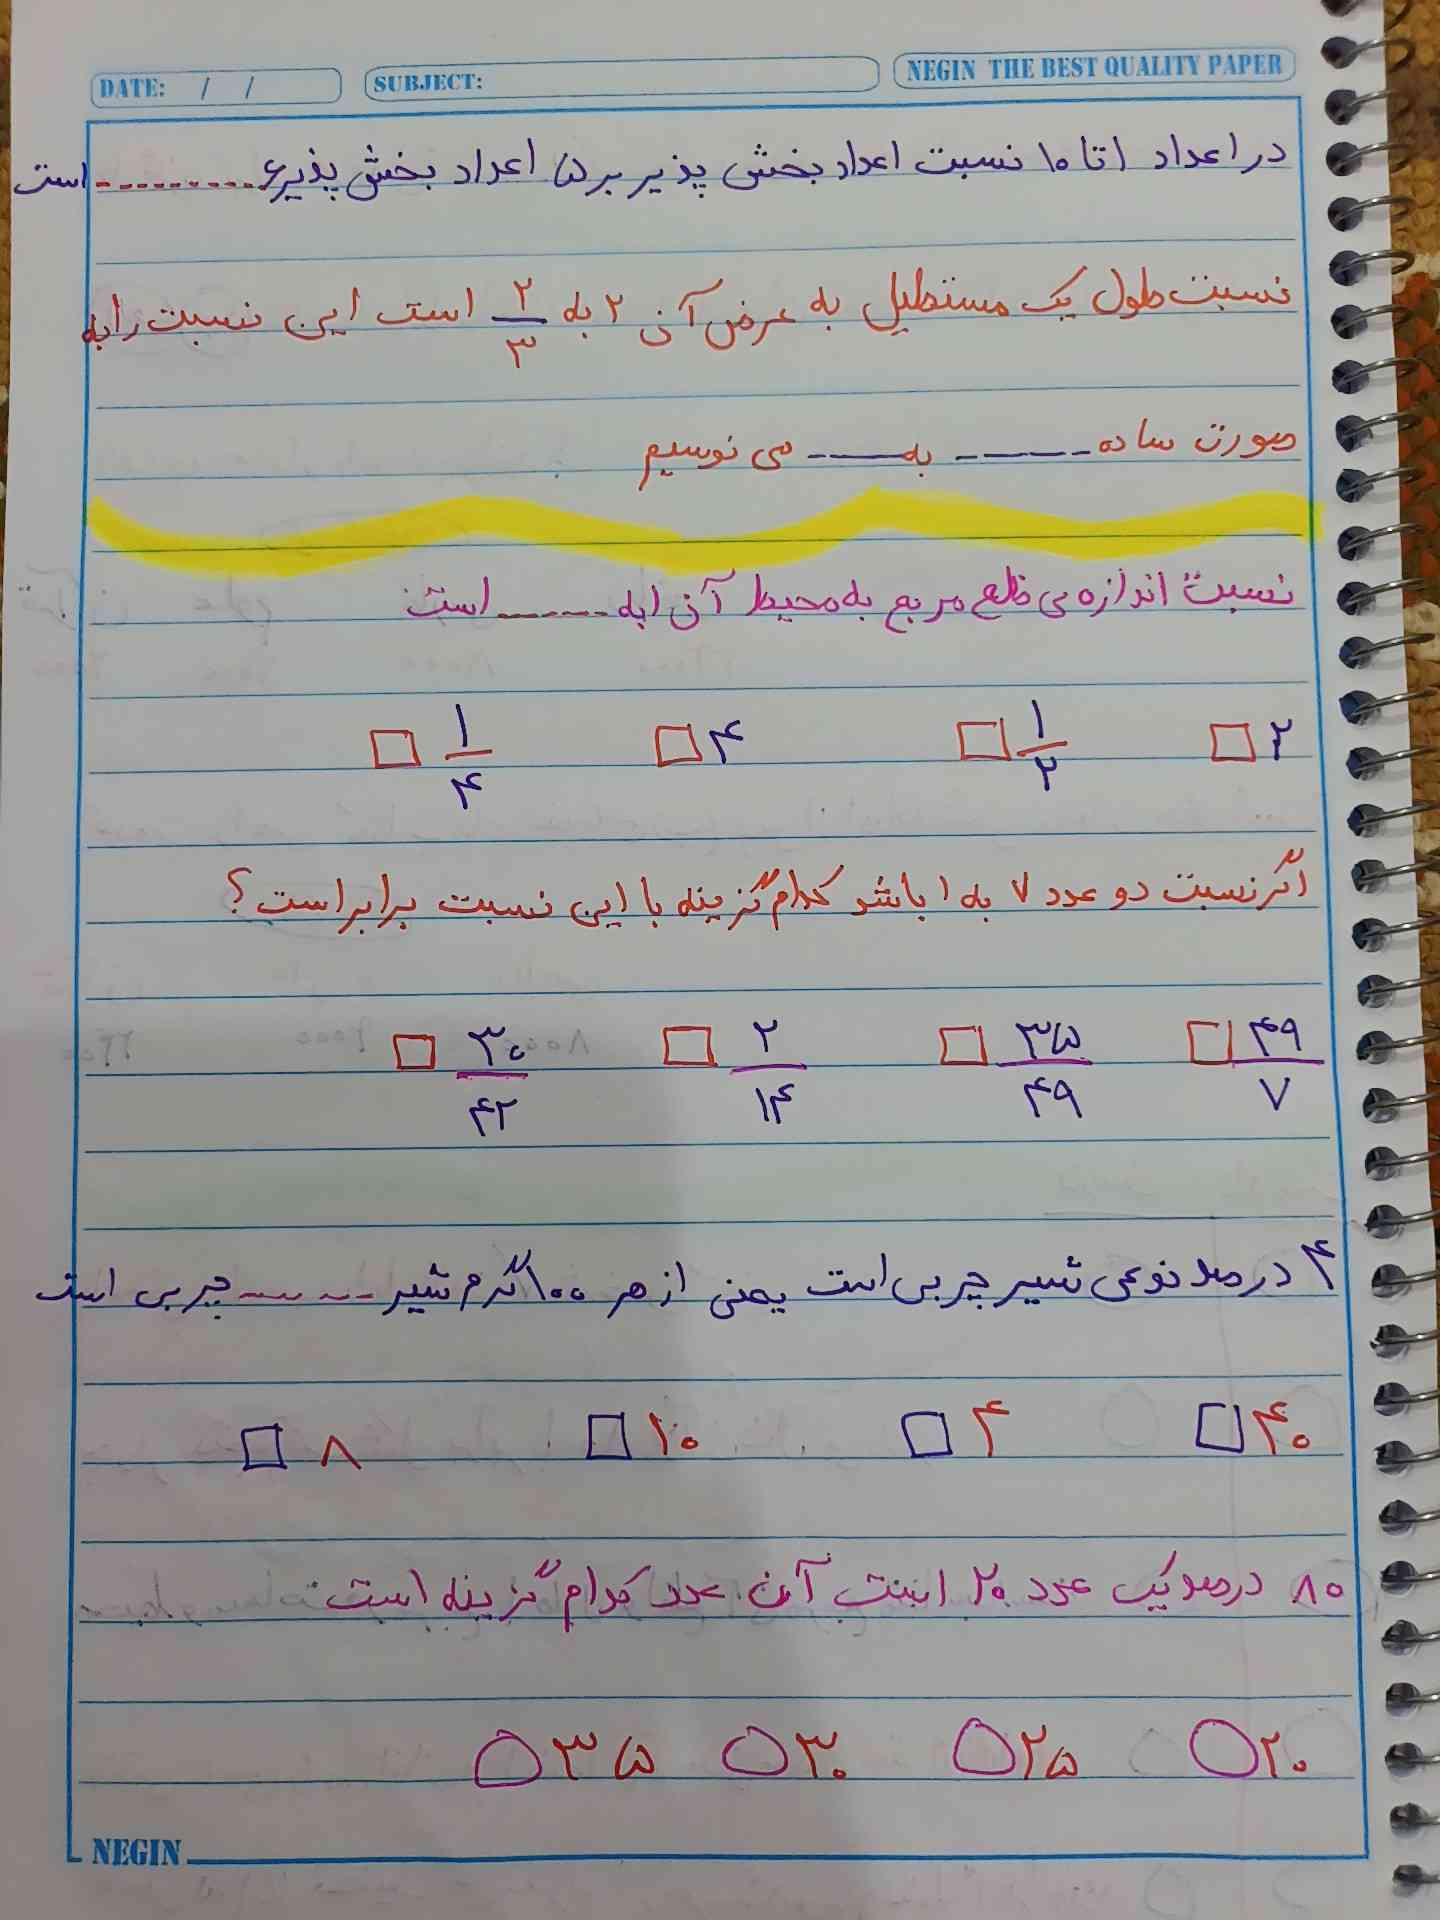 DATE: / / SUBJECT: NEGIN THE BEST QUALITY PAPER
در اعداد ۱ تا ۱۰ نسبت اعداد بخش پذیر بر ۵ اعداد بخش پذیر ۶ ......... است
نسبت طول یک مستطیل به عرض آن ۲ به ۲/۳ است این نسبت را به
صورت ساده ----- به ----- می نویسیم
نسبت اندازه ی ضلع مربع به محیط آن ۱ به ------ است
۲ □ ۱/۲ □ ۴ □ ۱/۴ □
اگر نسبت دو عدد ۷ به ۱ باشو کدام گزینه با این نسبت برابر است؟
۴۹/۷ □ ۳۵/۴۹ □ ۲/۱۴ □ ۳۰/۴۲ □
۴ درصد نوعی شیر چربی است یعنی از هر ۱۰۰ گرم شیر ------ چربی است
۴۰ □ ۴ □ ۱۰ □ ۸ □
۸۰ درصد یک عدد ۲۰ است آن عدد کدام گزینه است
۲۰ ○ ۲۵ ○ ۳۰ ○ ۳۵ ○
NEGIN